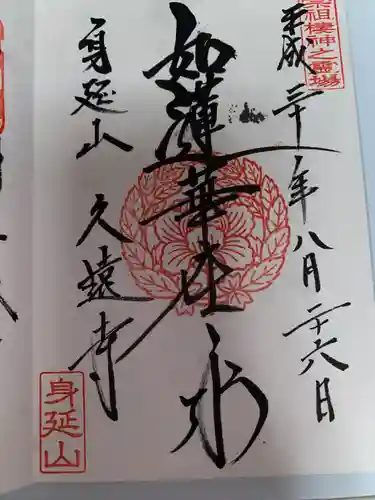 祖棲神之霊場
平成三十年八月二十六日
如蓮華在水
身延山久遠寺
身延山